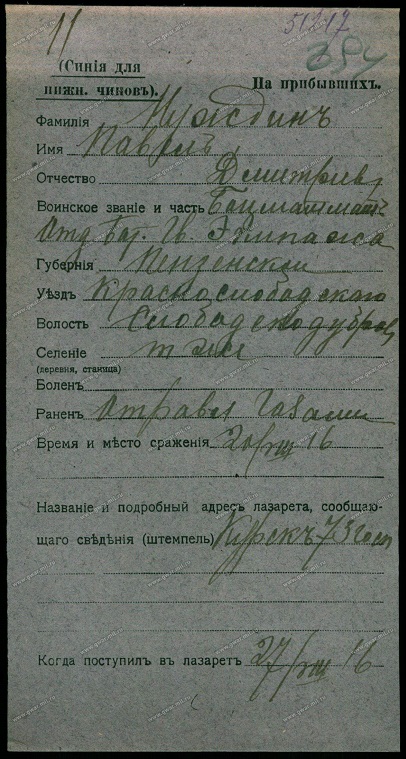 11 51217
384
(Синія для
нижн. чиновъ). На прибывшихъ.
Фамилія Нуждинъ
Имя Павелъ
Отчество Дмитріев
Воинское званіе и часть Боцманмат
Отд бат. Гв. Экипажа
Губернія Пензенская
Уѣздъ Краснослободскаго
Волость Слободскодубров
Селеніе т же
(деревня, станица)
Боленъ
Раненъ Отравл газами
Время и мѣсто сраженія 20/VIII 16
Названіе и подробный адресъ лазарета, сообщаю-
щаго свѣдѣнія (штемпель) Курскъ 73
Когда поступилъ въ лазаретъ 27/VIII 16